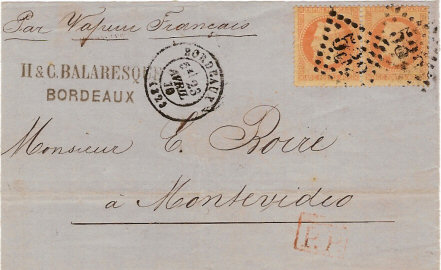 Par Vapeur Français
H & C. BALARESQUE
BORDEAUX
BORDEAUX
AVRIL
Monsieur E. Roire
à Montevideo
P.P.